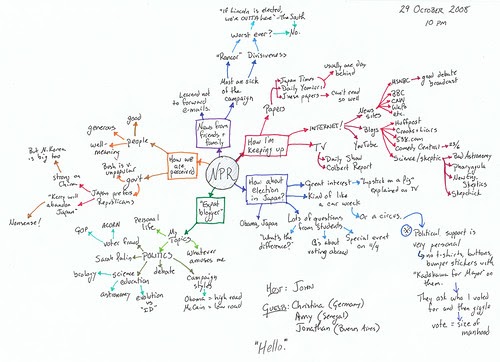 29 October 2008
10 PM
"if Lincoln is elected,
we're OUTTA here" - The South
Worst ever?
No.
"Rancor"
Divisiveness
Most are sick
of the
campaign
Learned not
to forward
e-mails.
News from
friends +
family
good
generous
people
well-
meaning
But N. Korea
is big too
Bush is v.
unpopular
gov't
strong on
China
Japan prefers
Republicans
"Kerry will
abandon
Japan"
Nonsense!
How we
are
perceived
NPR
How I'm
keeping up
Papers
Japan Times
Daily Yomiuri
usually one day
behind
Japanese papers
can't read
so well
INTERNET!
News
sites
MSNBC
good debate
broadcast
BBC
CNN
WaPo
etc.
Blogs
HuffPost
Crooks + Liars
538.com
YouTube
Comedy Central
Science/skeptic
Bad Astronomy
Pharyngula
New Eng.
Skeptics
Skepchick
TV
Daily Show
Colbert Report
How about
election
in Japan?
Great interest
"Lipstick on a Pig"
explained on TV
Kind of like
a car wreck
Or a circus.
Lots of questions
from students
Q's about
voting abroad
Special event
on 11/4
Obama, Japan
"What's the
difference?"
Political support is
very personal
no t-shirts, buttons,
bumper stickers with
"Kadokawa for Mayor" on
them.
They ask who I voted
for and then giggle
vote = size of
manhood
"Expat
blogger"
My
Topics
Personal
life
Whatever
amuses me
POLITICS
ACORN
GOP
voter fraud
Sarah Palin
debate
Campaign
styles
Obama = high road
McCain = low road
science
education
biology
astronomy
evolution
vs
"ID"
Host: John
Guests: Christina (Germany)
Amy (Senegal)
Jonathan (Buenos Aires)
"Hello."